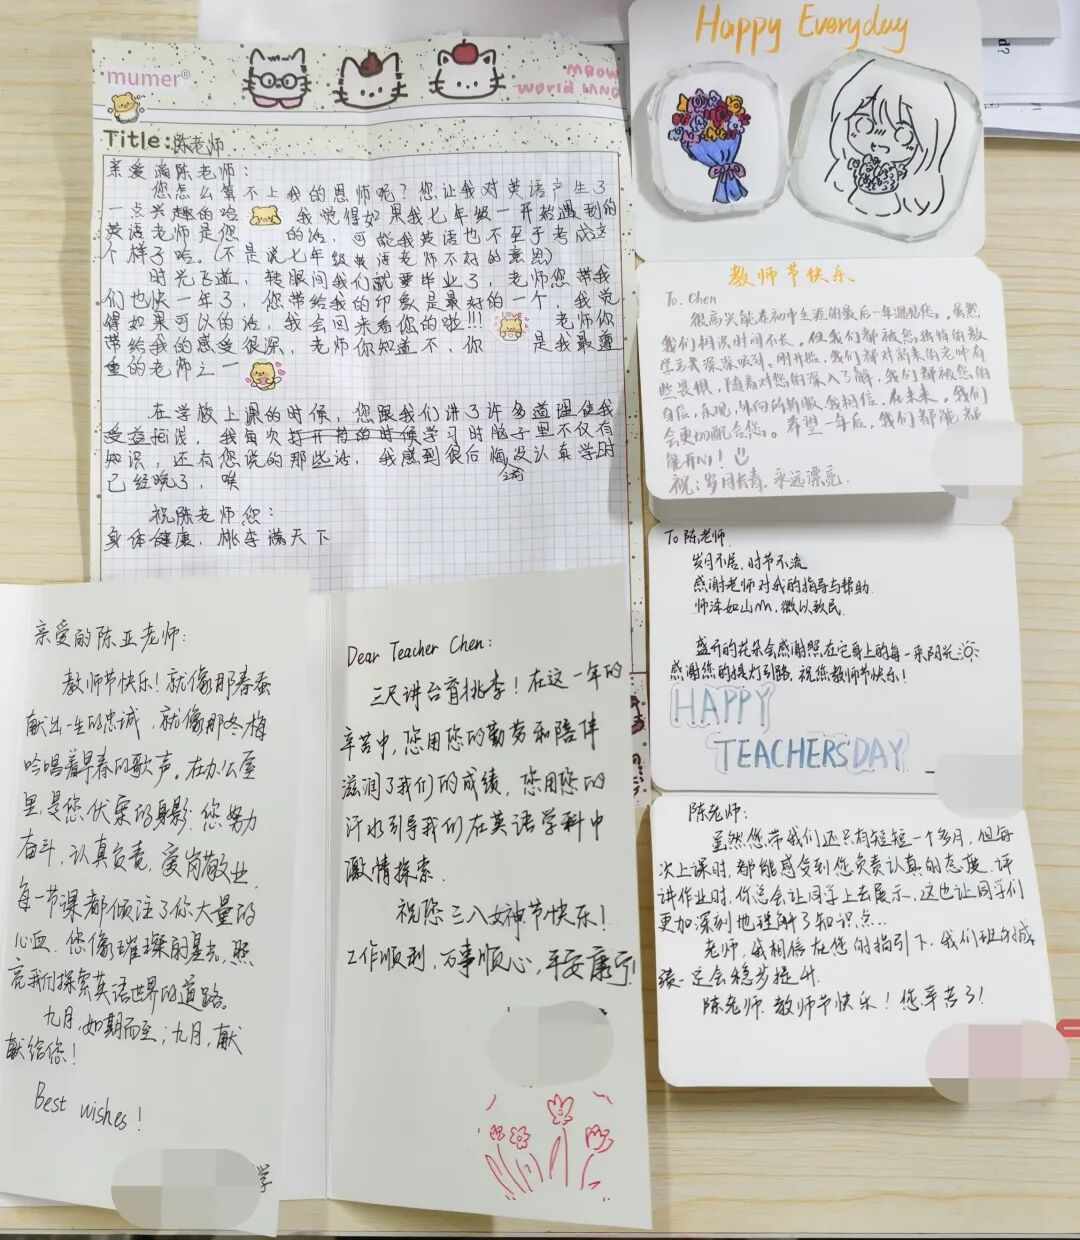 mumer®
MEOW
World
Title:陈老师
亲爱滴陈老师：
您怎么算不上我的恩师呢？您让我对英语产生了
一点兴趣的哈 我觉得如果我七年级一开始遇到的
英语老师是您 的话，可能我英语也不至于考成这
个样子哈。(不是说七年级英语老师不好的意思)
时光飞逝，转眼间我们就要毕业了，老师您带我
们也快一年了，您带给我的印象是最好的一个，我觉
得如果可以的话，我会回来看您的啦!!! LOVE 老师你
带给我的感受很深，老师你知道不，你 是我最尊
重的老师之一
在学校上课的时候，您跟我们讲了许多道理使我
受益匪浅，我每次打开书的时候学习时脑子里不仅有
知识，还有您说的那些话，我感到很后悔没认真学时
已经晚了，唉
祝陈老师您：
身体健康，桃李满天下
Happy Everyday
教师节快乐
To. Chen
很高兴能在初中生涯的最后一年遇见您。虽然，
我们相识时间不长，但我们都被您独特的教
学方式深深吸引。刚开始，我们都对新来的老师有
些畏惧，随着对您的深入了解，我们都被您的
自信，乐观，外向所折服。我相信，在未来，我们
会更加配合您。希望一年后，我们都能都
能开心！
祝：岁月长青，永远漂亮
To 陈老师
岁月不居，时节不流
感谢老师对我的指导与帮助
师泽如山，微以致民
盛开的花朵会感谢照在它身上的每一束阳光
感谢您的提灯引路，祝您教师节快乐！
HAPPY
TEACHERSDAY
陈老师：
虽然您带我们还只有短短一个多月，但每
次上课时，都能感受到您负责认真的态度，评
讲作业时，你总会让同学上去展示，这也让同学们
更加深刻地理解了知识点...
老师，我相信在您的指引下，我们班的成
绩一定会稳步提升
陈老师，教师节快乐！您辛苦了！
亲爱的陈亚老师：
教师节快乐！就像那春蚕
献出一生的忠诚，就像那冬梅
吟唱着早春的歌声。在办公屋
里，是您伏案的身影，您努力
奋斗，认真负责，爱岗敬业，
每一节课都倾注了你大量的
心血，您像璀璨的星光，照
亮我们探索英语世界的道路。
九月，如期而至；九月，献
献给您！
Best wishes!
学
Dear Teacher Chen:
三尺讲台育桃李！在这一年的
辛苦中，您用您的勤劳和陪伴
滋润了我们的成绩，您用您的
汗水引导我们在英语学科中
激情探索.
祝您三八女神节快乐！
工作顺利，万事顺心，平安康宁！